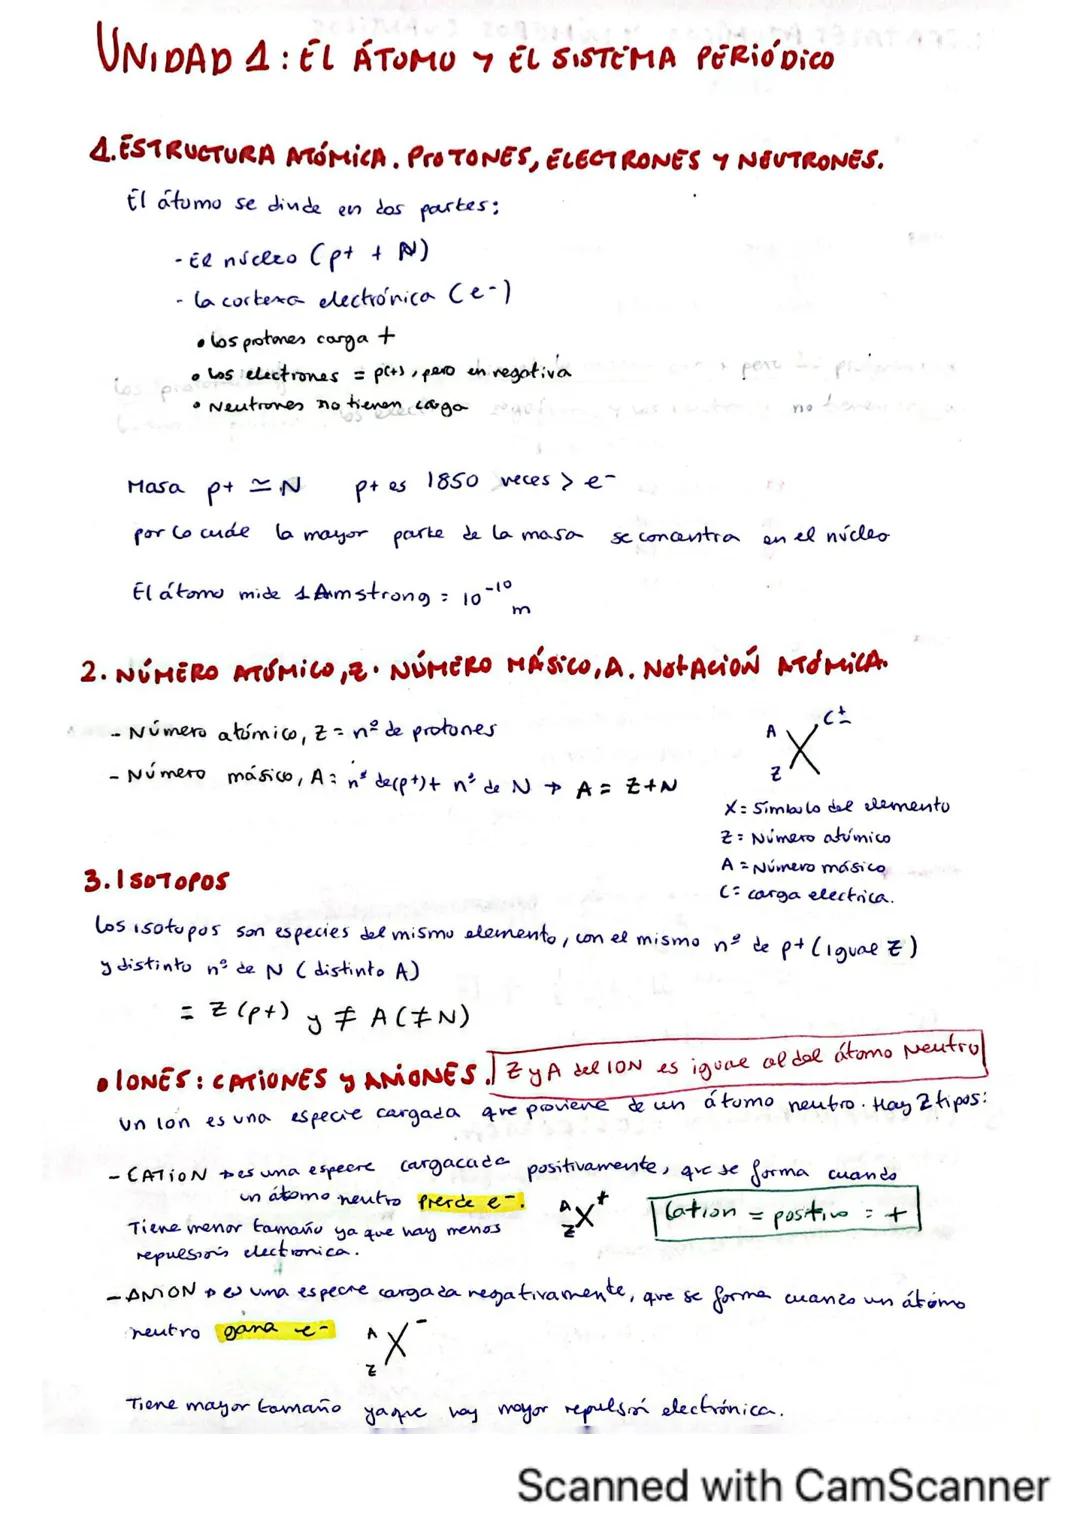 UNIDAD 1: EL ÁTOMO Y EL SISTEMA PERIÓDICO
1. ESTRUCTURA ATÓMICA. PROTONES, ELECTRONES Y NEUTRONES.
El átomo se divide en dos partes:
- El núcleo (p+ + N)
- la corteza electrónica (e-)
• los protones carga +
• los electrones = p(+), pero en negativa
• Neutrones no tienen carga
Masa p+ ≃ N p+ es 1850 veces > e-
por lo cuál la mayor parte de la masa se concentra en el núcleo
El átomo mide 1 Amstrong = 10⁻¹⁰ m
2. NÚMERO ATÓMICO, Z. NÚMERO MÁSICO, A. NOTACIÓN ATÓMICA.
- Número atómico, Z = nº de protones
- Número másico, A = nº de (p+) + nº de N → A = Z+N
A X C±
Z
X = Símbolo del elemento
Z = Número atómico
A = Número másico
C = carga electrica.
3. ISOTOPOS
los isotopos son especies del mismo elemento, con el mismo nº de p+ (igual Z)
y distinto nº de N (distinto A)
= Z (p+) y ≠ A (≠ N)
• IONES: CATIONES y ANIONES. Z y A del ION es igual al del átomo Neutro
Un ión es una especie cargada que proviene de un átomo neutro. Hay 2 tipos:
- CATION → es una especie cargacada positivamente, que se forma cuando
un átomo neutro pierde e-. A Z X + Cation = positivo = +
Tiene menor tamaño ya que hay menos
repulsión electronica.
- ANION → es una especie cargada negativamente, que se forma cuando un átomo
neutro gana e- A Z X -
Tiene mayor tamaño ya que hay mayor repulsión electrónica.
Scanned with CamScanner